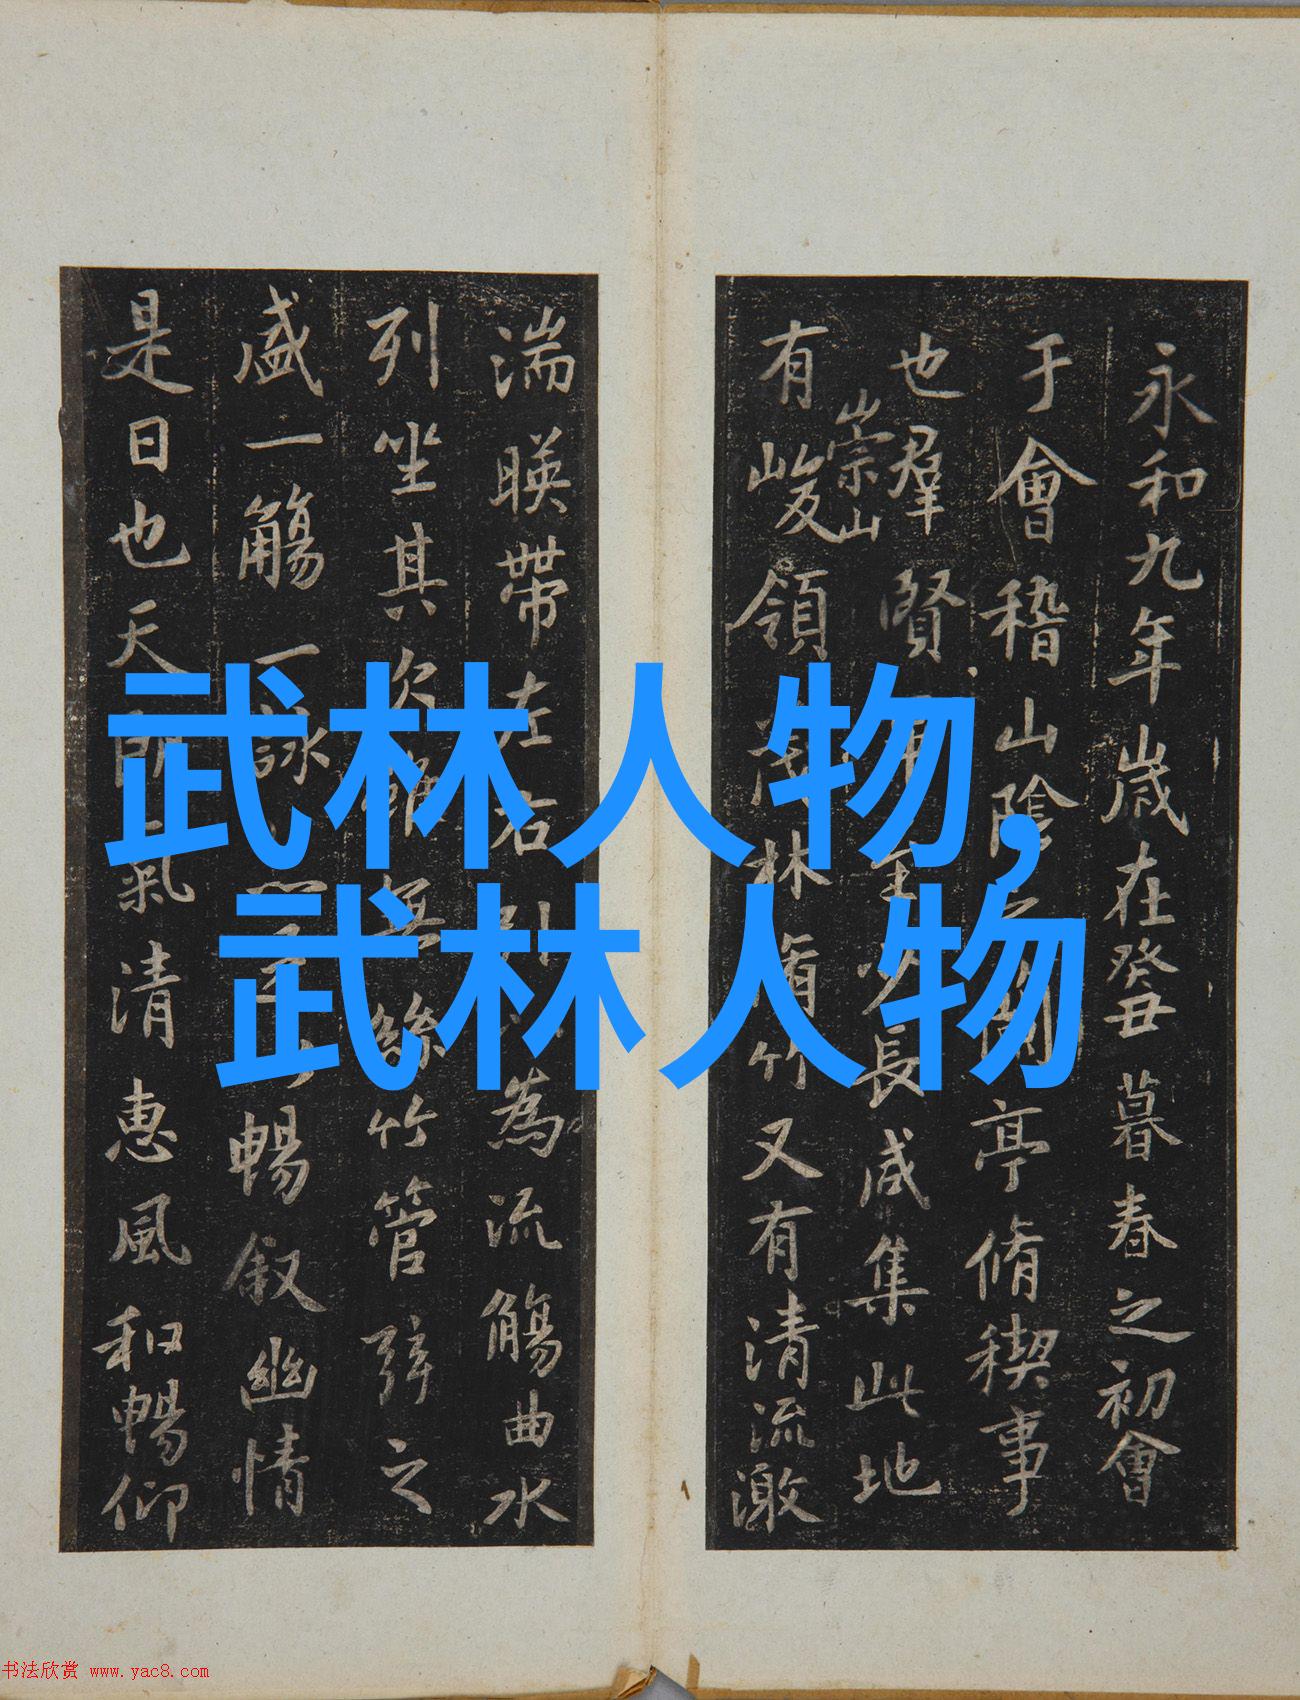 武林人物,
武林人物
永和九年歲在癸丑暮春之初會
于會稽山陰之蘭亭脩稧事
也羣賢至少長咸集此地
崇山
有峻領茂林脩竹又有清流激
湍暎帶左右引為流觴曲水
列坐其次雖無絲竹管弦之
盛一觴一詠暢叙幽情
是日也天朗氣清惠風和暢仰
书法欣赏 www.yac8.com